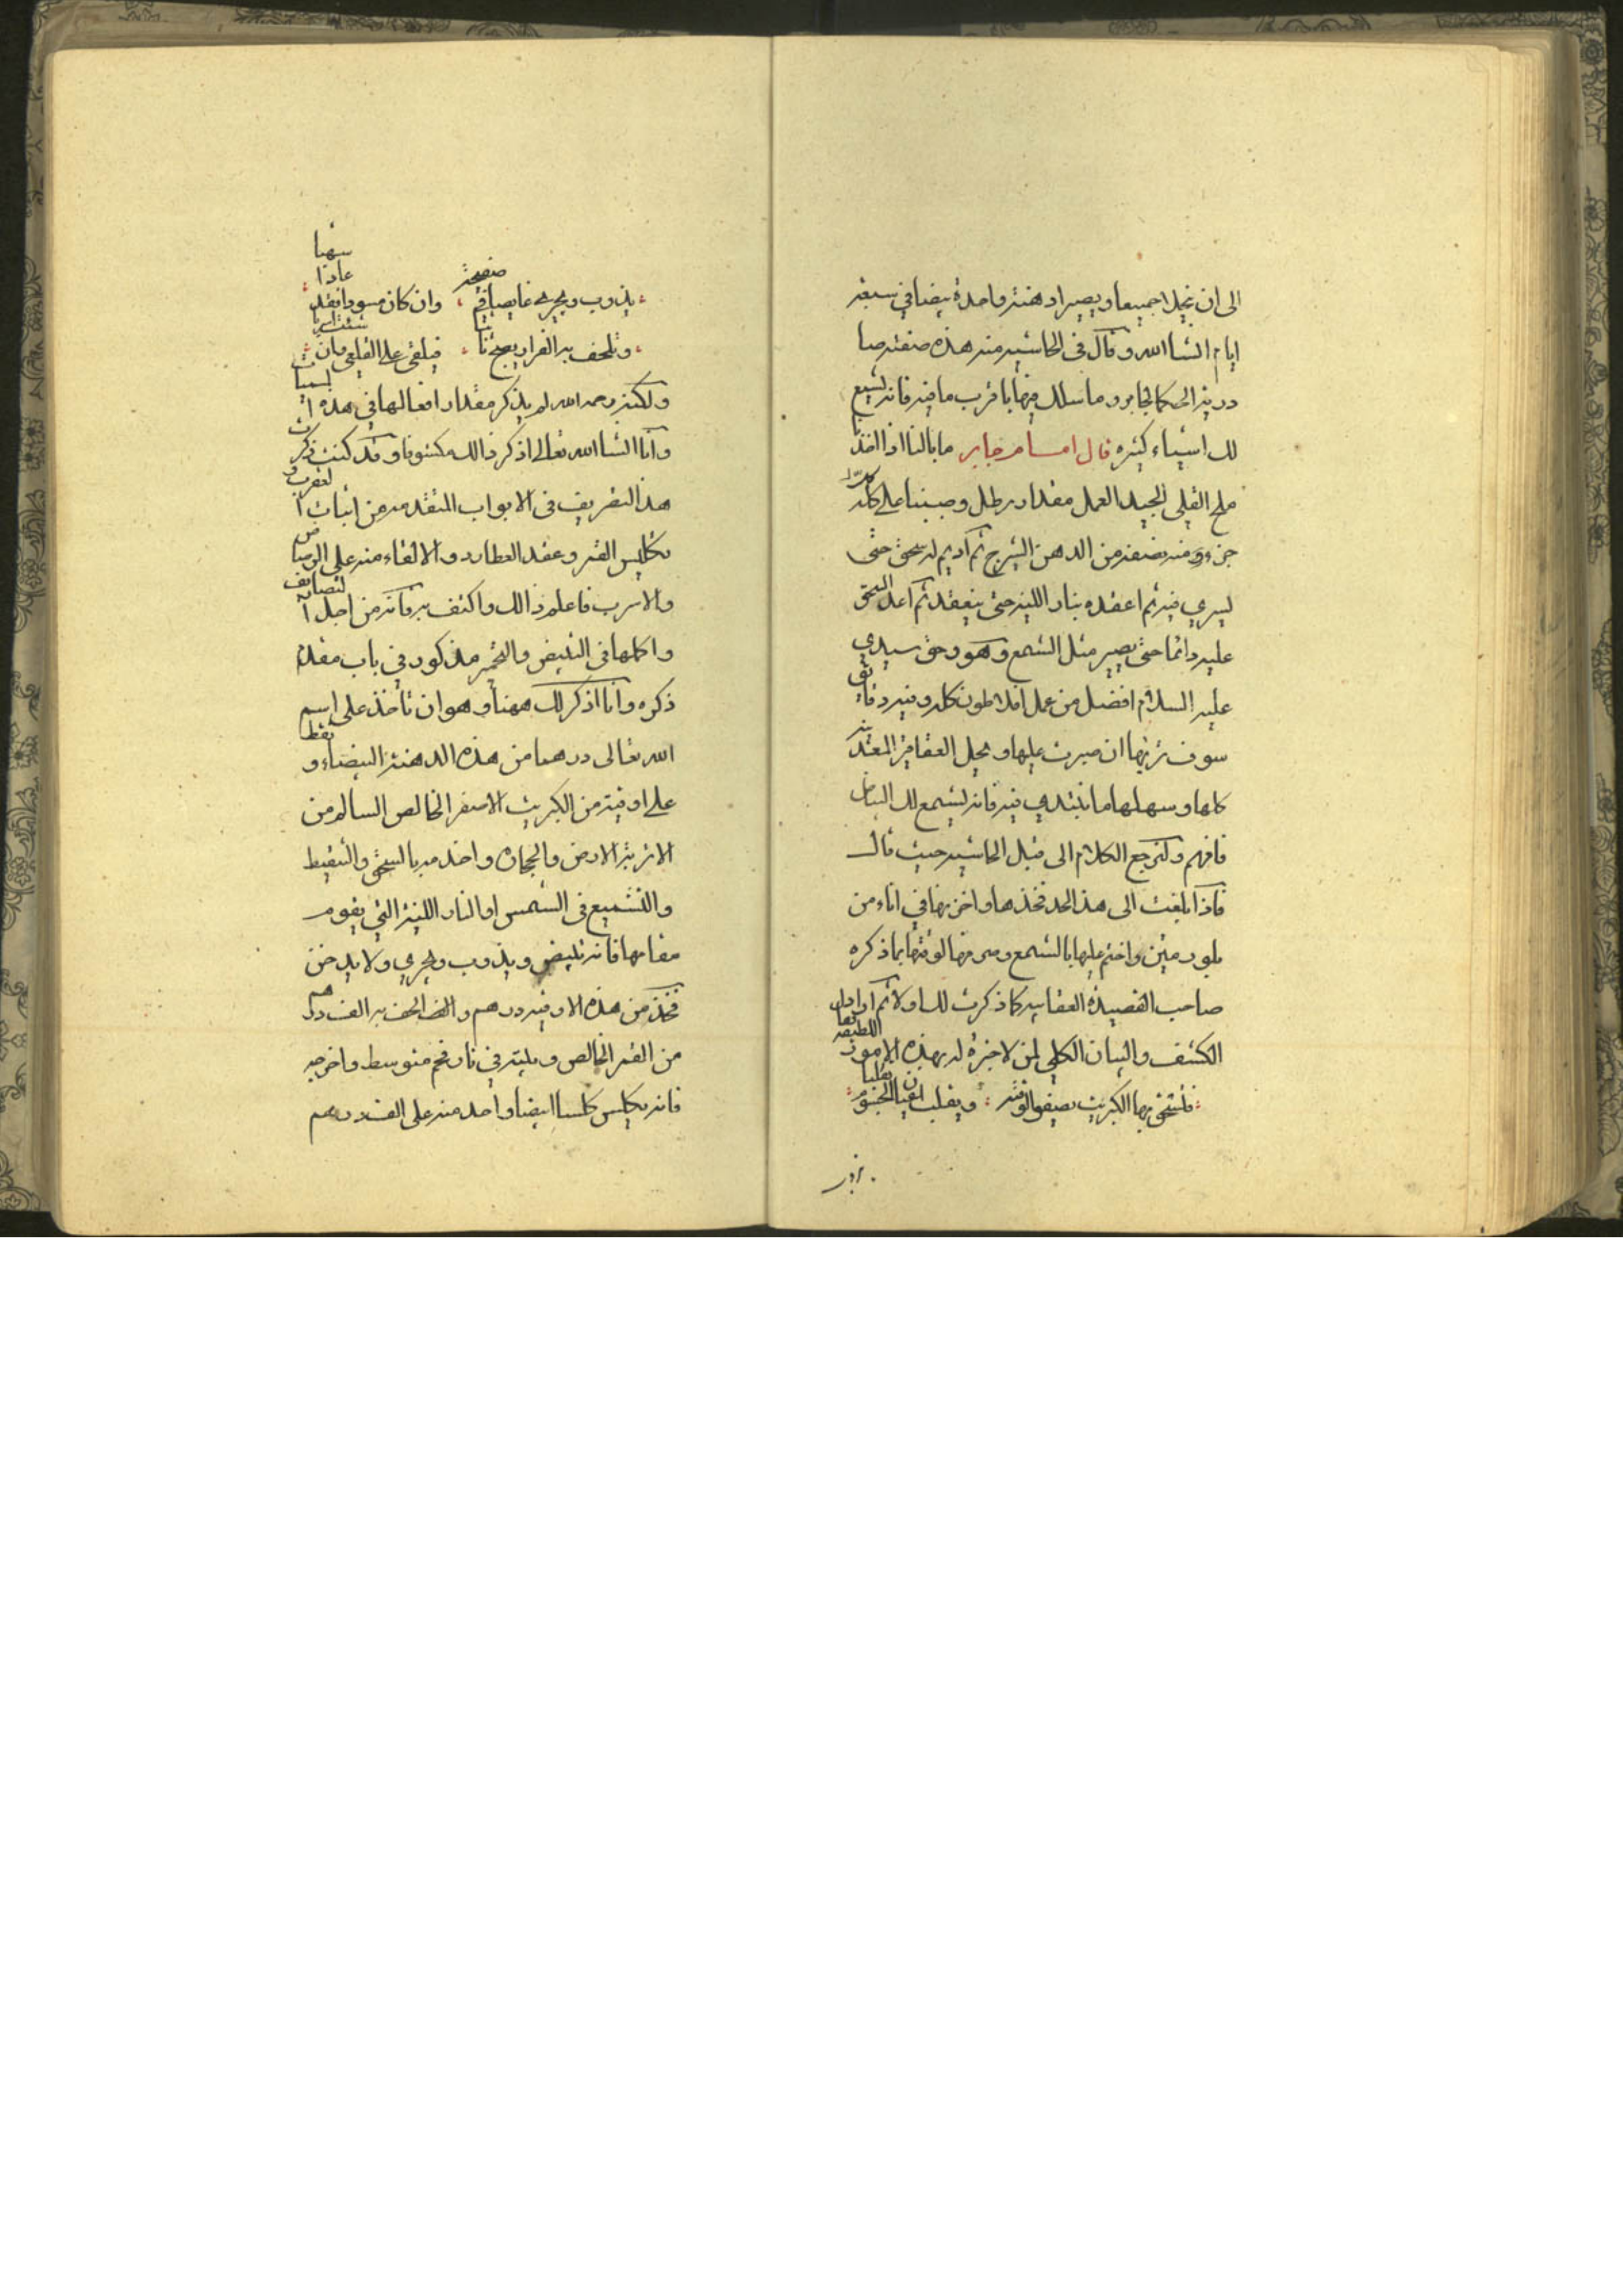 الى ان ينحل جميعا ويصير ادهنة واحدة بيضا في سبعة
ايام انشا الله وقال في الحاشية منه هذه صفة صا
درية الحكما لجابر وما سلك فيها باقرب ما فيه فانه تشمع
لك اشياء كثيره قال امسا مرجابر مابالنا اذا اخذنا
ملح القلى الجيد العمل مقدار رطل وصببنا على كل
جزء ومنه نصفه من الدهن الشيرج ثم اديم له سحق حتى
يسري فيه ثم اعقده بنار اللينه حتى ينعقد ثم اعد السحق
عليه دائما حتى يصير مثل الشمع وهو وحق سيدي
عليه السلام افضل من عمل افلاطون كله وفيه دقائق
سوف تريها ان صبرت عليها ويحل العقاقير المعدنية
كلها وسهلها ما تبتدي فيه فانه يشمع لك البياض
فافهم ولنرجع الكلام الى قبل الحاشيه حيث قال
فاذا بلغت الى هذا الحد فخذها واخزنها في اناء من
بلور متين واختم عليها بالشمع ومى منها لوقتها بما ذكره
صاحب القصيدة العقابيه كما ذكرت لك اولا ثم اراد ان
الكشف والبيان الكلي لمن لا خبرة له بهذه الرموز اللطيفه
فلتسحق بها الكبريت يصفو لوقته ويقلب
يذوب ويجري غايصا في صفيحة وان كان مسودا نقيا
وتلحف به القرار يصبح ثابتا فيلقى على القلعي
ولكنه رحمه الله لم يذكر مقدار افعالها في هذه الابيات
وانا انشا الله تعالى اذكر ذالك مكشوفا وقد كنت ذكرت
هذا التعريف في الابواب المتقدمه من اثبات العقرب و
تكليس القمر وعقد العطارد والالقاء منه على الرصاص
والاسرب فاعلم ذالك واكتف به فانه من اجل التصانيف
واكملها في التبييض والتحمير مذكور في باب مقدم
ذكره وانا اذكر لك ههنا وهو ان تأخذ على اسم
الله تعالى درهما من هذه الدهنة البيضاء ونقط
على اوقية من الكبريت الاصفر الخالص السالم من
الاتربة الارض والحجاره واخدمه بالسحق والتسقيط
والتشميع في الشمس او النار اللينة التي يقوم
مقامها فانه تبييض ويذوب ويجري ولا يدخن
فخذ من هذه الاوقيه درهم والحف به الف درهم
من القمر الخالص وبيته في نار فحم متوسط واخرجه
فانه يكلس كلسا ابيضا واحد منه على الف درهم